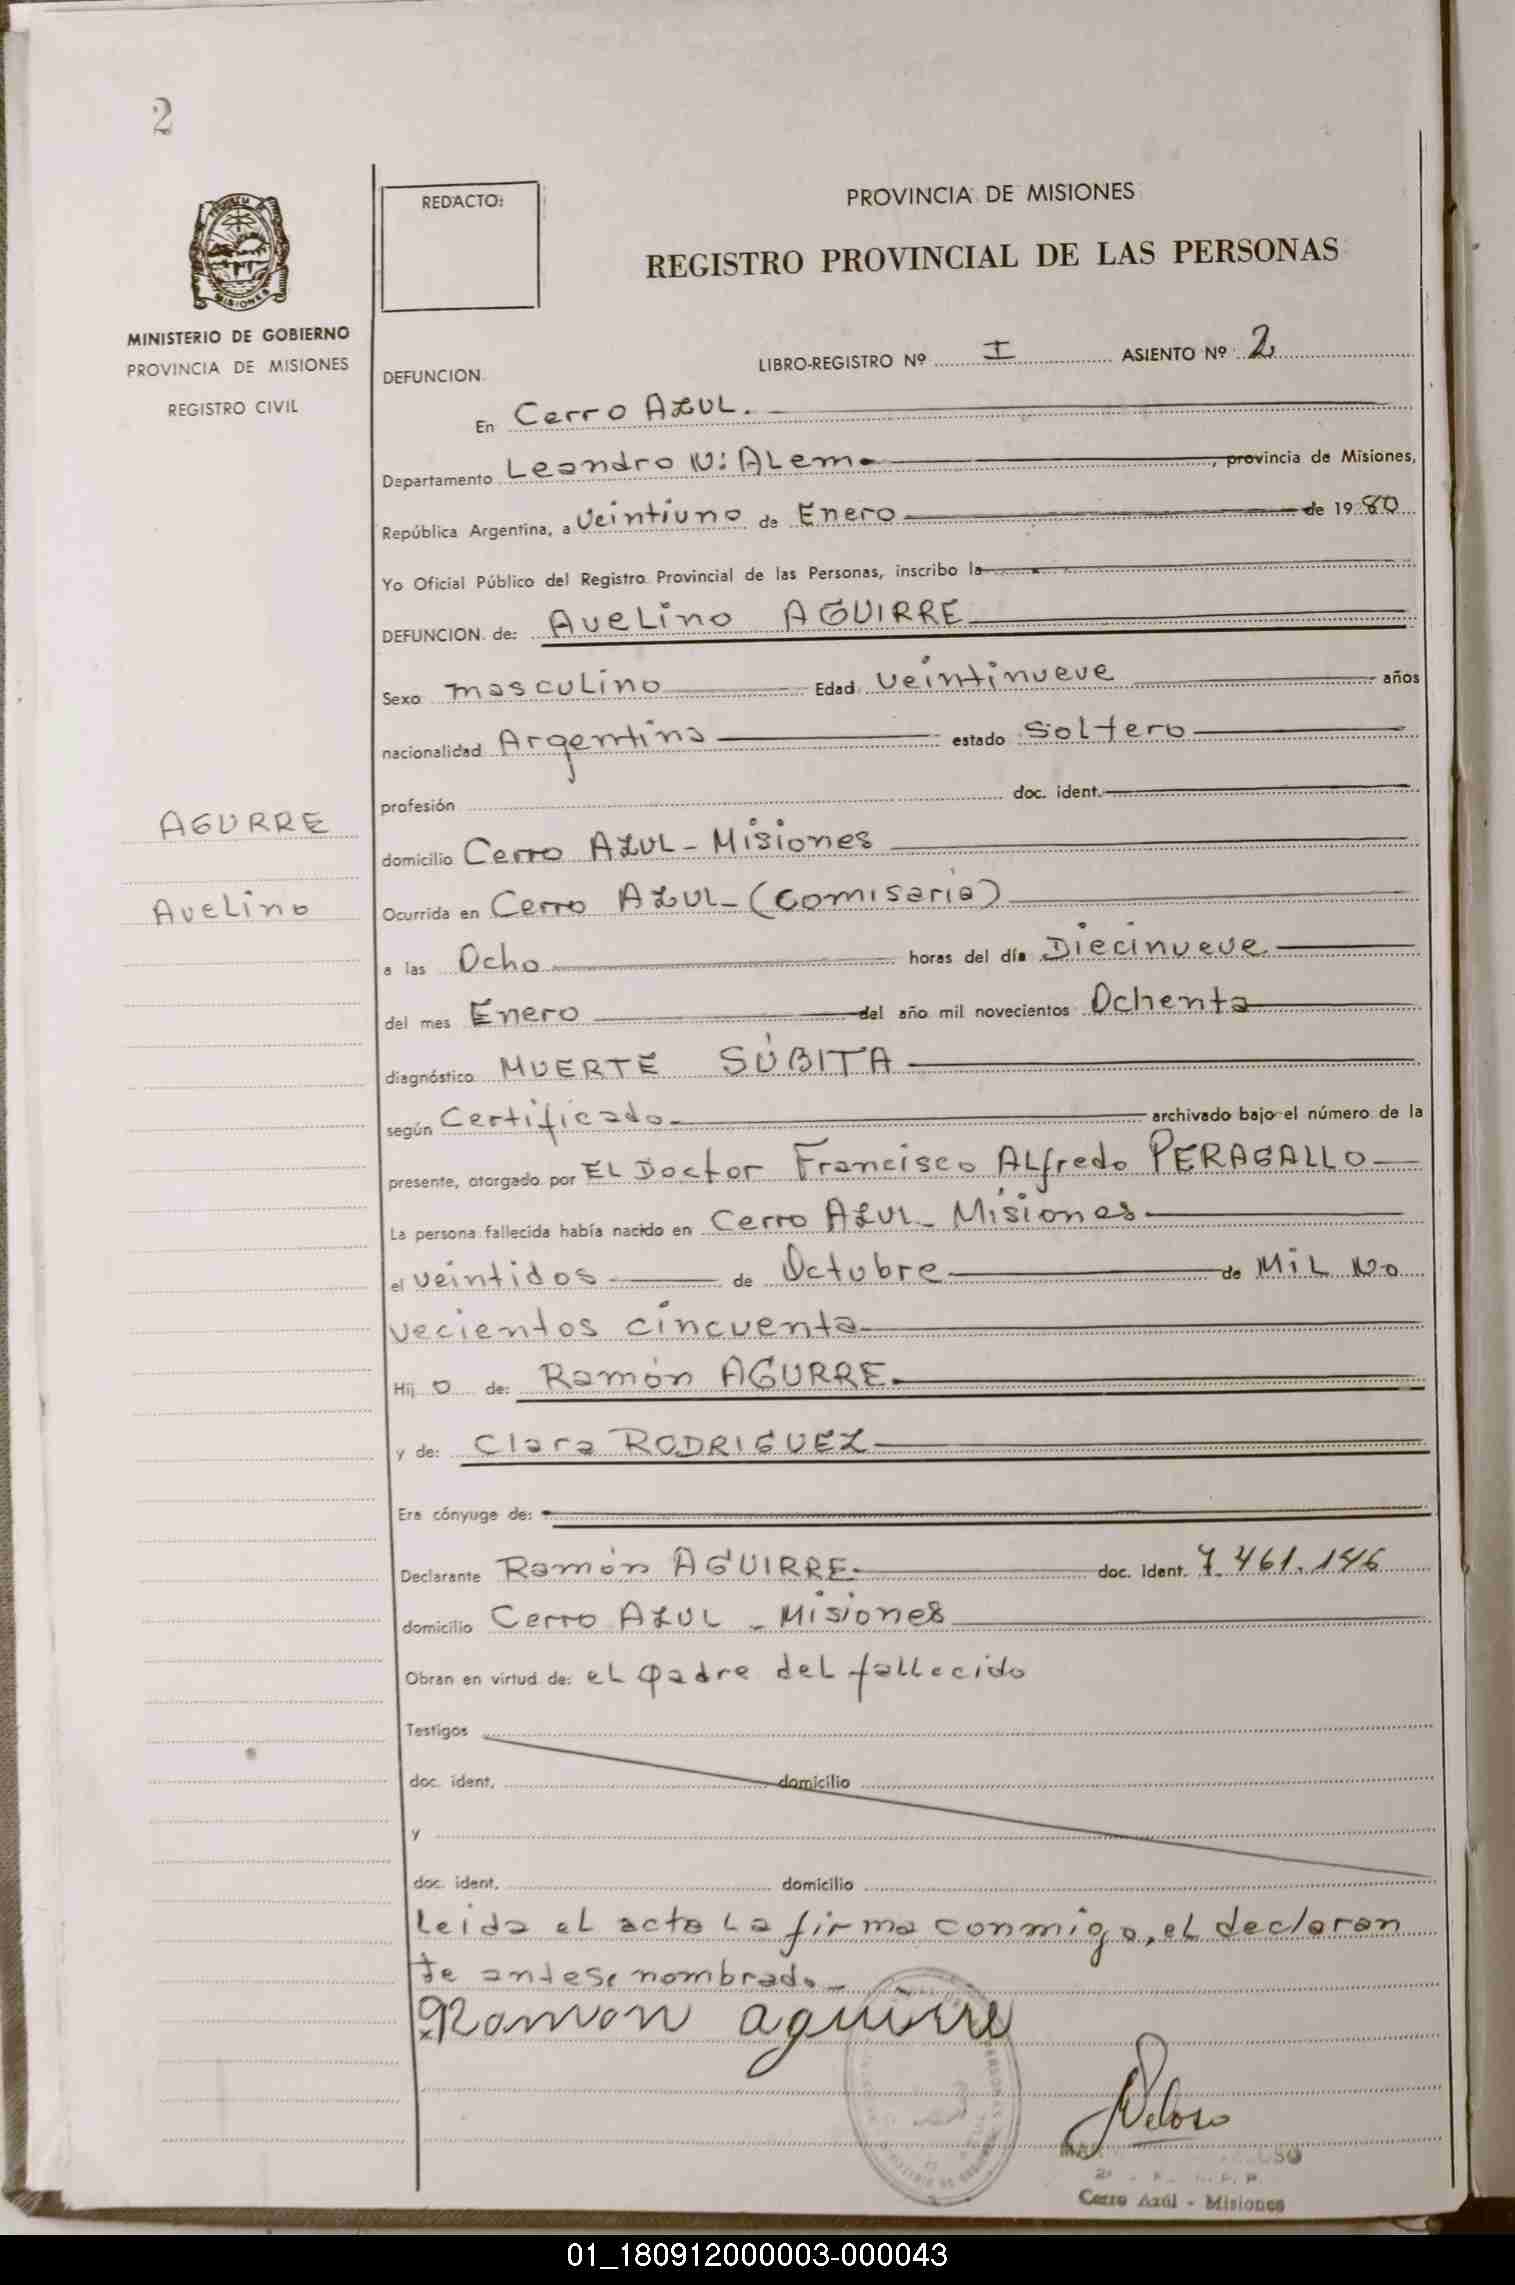 2
REDACTO:
PROVINCIA DE MISIONES
REGISTRO PROVINCIAL DE LAS PERSONAS
MISIONES
MINISTERIO DE GOBIERNO
PROVINCIA DE MISIONES
REGISTRO CIVIL
DEFUNCION.
LIBRO-REGISTRO Nº I ASIENTO Nº 2
En Cerro AZUL.
Departamento Leandro N: ALem, provincia de Misiones,
República Argentina, a Veintiuno de Enero de 1980
Yo Oficial Público del Registro Provincial de las Personas, inscribo la
DEFUNCION de: AveLino AGUIRRE
Sexo masculino Edad veintinueve años
nacionalidad Argentina estado soltero
profesión doc. ident.
AGURRE
domicilio Cerro AZUL - Misiones
AveLino
Ocurrida en Cerro AZUL - (comisaria)
a las Ocho horas del día Diecinueve
del mes Enero del año mil novecientos Ochenta
diagnóstico MUERTE SÚBITA
según Certificado archivado bajo el número de la
presente, otorgado por EL Doctor Francisco ALfredo PERAGALLO
La persona fallecida había nacido en Cerro AZUL - Misiones
el veintidos de Octubre de MiL No
vecientos cincuenta
Hij o de: Ramón AGURRE
y de: Clara RODRIGUEZ
Era cónyuge de:
Declarante Ramón AGUIRRE doc. Ident. 7.461.146
domicilio Cerro AZUL - Misiones
Obran en virtud de: eL padre deL fallecido
Testigos
doc. ident. domicilio
y
doc. ident. domicilio
Leida eL acta La firma conmigo, eL declaran
te antes nombrado
Ramon aguirre
Cerro Azúl - Misiones
01_180912000003-000043